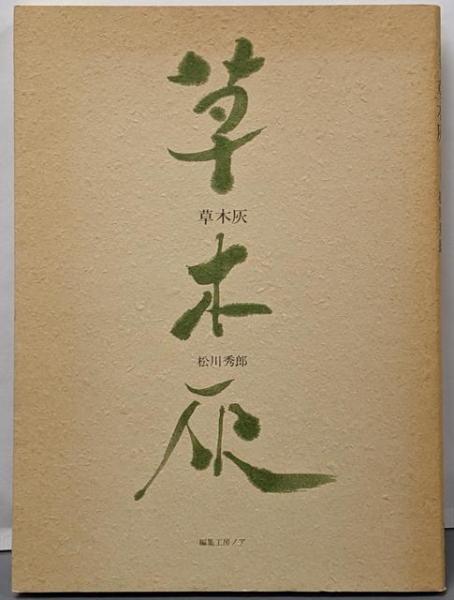 草木灰
草木灰
松川秀郎
編集工房ノア